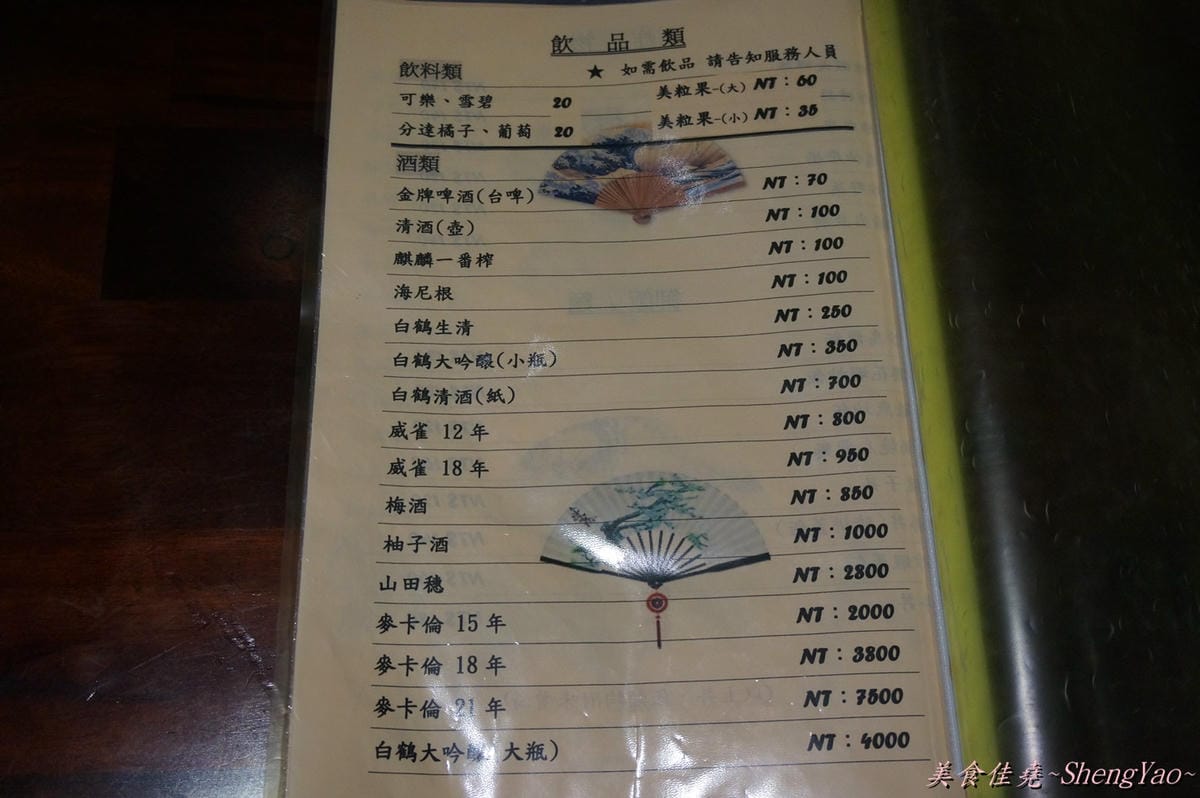 飲品類
飲料類 ★ 如需飲品 請告知服務人員
可樂、雪碧 20 美粒果-(大) NT：60
分達橘子、葡萄 20 美粒果-(小) NT：35
酒類
金牌啤酒(台啤) NT：70
清酒(壺) NT：100
麒麟一番榨 NT：100
海尼根 NT：100
白鶴生清 NT：250
白鶴大吟釀(小瓶) NT：350
白鶴清酒(紙) NT：700
威雀 12 年 NT：800
威雀 18 年 NT：950
梅酒 NT：850
柚子酒 NT：1000
山田穗 NT：2800
麥卡倫 15 年 NT：2000
麥卡倫 18 年 NT：3800
麥卡倫 21 年 NT：7500
白鶴大吟釀(大瓶) NT：4000
美食佳堯~ShengYao~